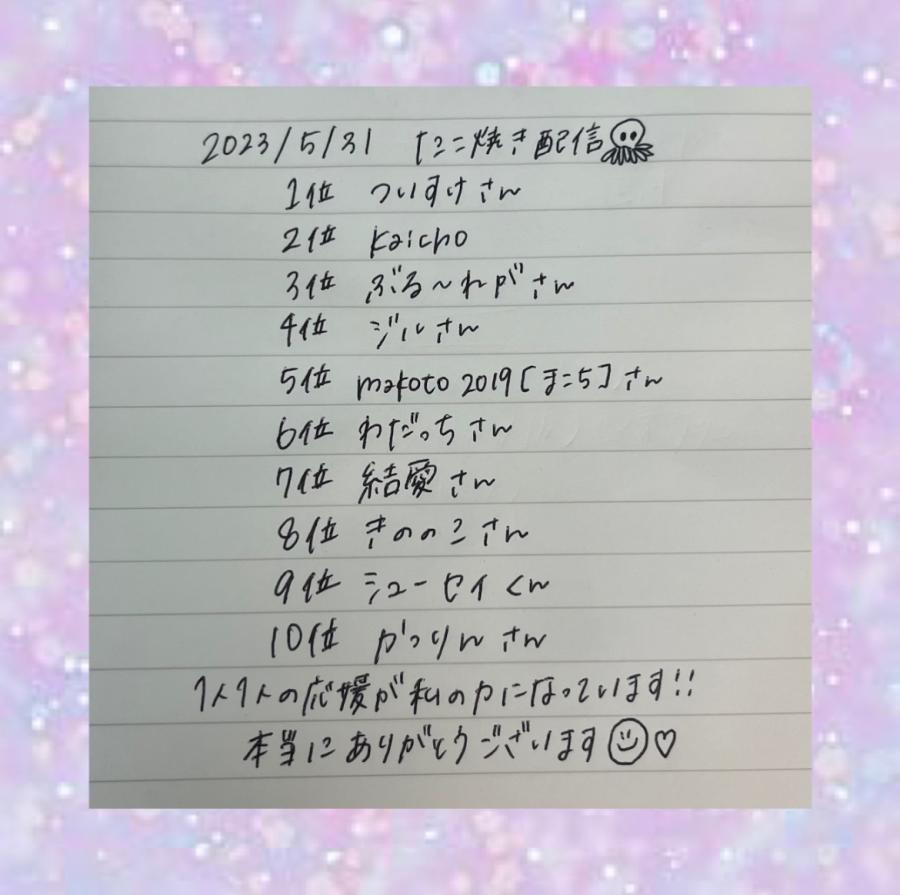 2023/5/31 たこ焼き配信
1位 ついすけさん
2位 Kaicho
3位 ぶる〜れがさん
4位 ジルさん
5位 makoto 2019[まこち]さん
6位 わだっちさん
7位 結愛さん
8位 きののこさん
9位 シューセイくん
10位 かつりんさん
1人1人の応援が私の力になっています!!
本当にありがとうございます